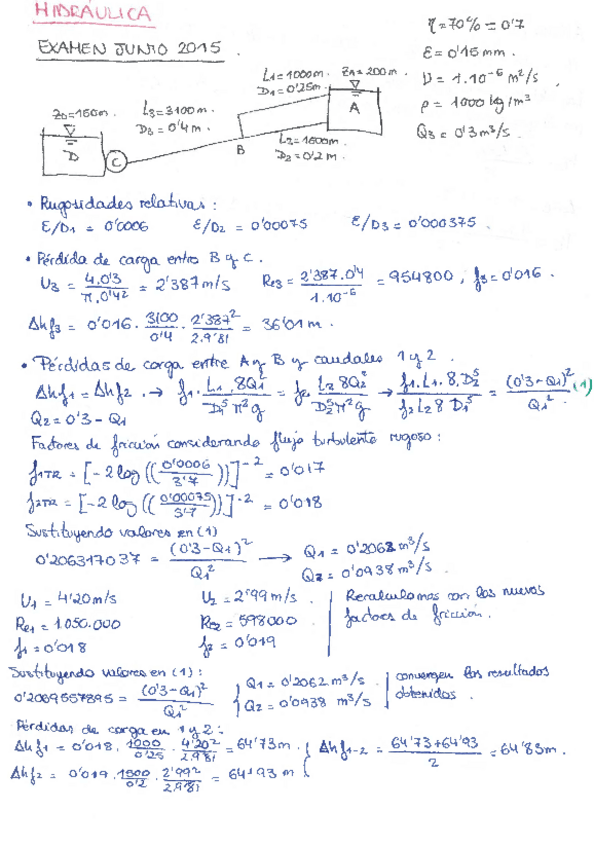 HIDRÁULICA
EXAMEN JUNIO 2015.
η=70%=0'7
ε=0'15mm.
ν=1.10⁻⁶ m²/s
ρ=1000 kg/m³
Q₃=0'3m³/s.
L₁=1000m. Z_A=200m.
D₁=0'25m.
A
Z_D=150m. L₃=3100m.
D₃=0'4m.
D
C
B
L₂=1500m.
D₂=0'2m.
• Rugosidades relativas:
ε/D₁ = 0'0006 ε/D₂ = 0'00075 ε/D₃ = 0'000375.
• Pérdida de carga entre B y C.
U₃ = 4.0'3 / π.0'4² = 2'387 m/s Re₃ = 2'387.0'4 / 1.10⁻⁶ = 954800, f₃=0'016.
Δhf₃ = 0'016 . 3100/0'4 . 2'387²/2.9'81 = 36'01 m.
• Pérdidas de carga entre A y B y caudales 1 y 2.
Δhf₁ = Δhf₂ . → f₁. L₁.8Q₁² / D₁⁵π²g = f₂ L₂8Q₂² / D₂⁵π²g → f₁.L₁.8.D₂⁵ / f₂L₂8D₁⁵ = (0'3-Q₁)² / Q₁² (1)
Q₂=0'3-Q₁
Factores de fricción considerando flujo turbulento rugoso:
f₁TR = [-2log((0'0006/3'7))]⁻² = 0'017
f₂TR = [-2log((0'00075/3'7))]⁻² = 0'018
Sustituyendo valores en (1)
0'206317037 = (0'3-Q₁)² / Q₁² → Q₁ = 0'2062 m³/s
Q₂ = 0'0938 m³/s.
U₁ = 4'20m/s U₂ = 2'99 m/s. Recalculamos con los nuevos
Re₁ = 1050.000 Re₂ = 598000 factores de fricción.
f₁ = 0'018 f₂ = 0'019
Sustituyendo valores en (1):
0'2069557895 = (0'3-Q₁)² / Q₁² Q₁ = 0'2062 m³/s convergen los resultados
Q₂ = 0'0938 m³/s obtenidos.
Pérdidas de carga en 1 y 2:
Δhf₁ = 0'018. 1000/0'25 . 4'20²/2.9'81 = 64'73m. Δhf₁₋₂ = 64'73+64'93 / 2 = 64'83m.
Δhf₂ = 0'019. 1500/0'2 . 2'99²/2.9'81 = 64'93 m